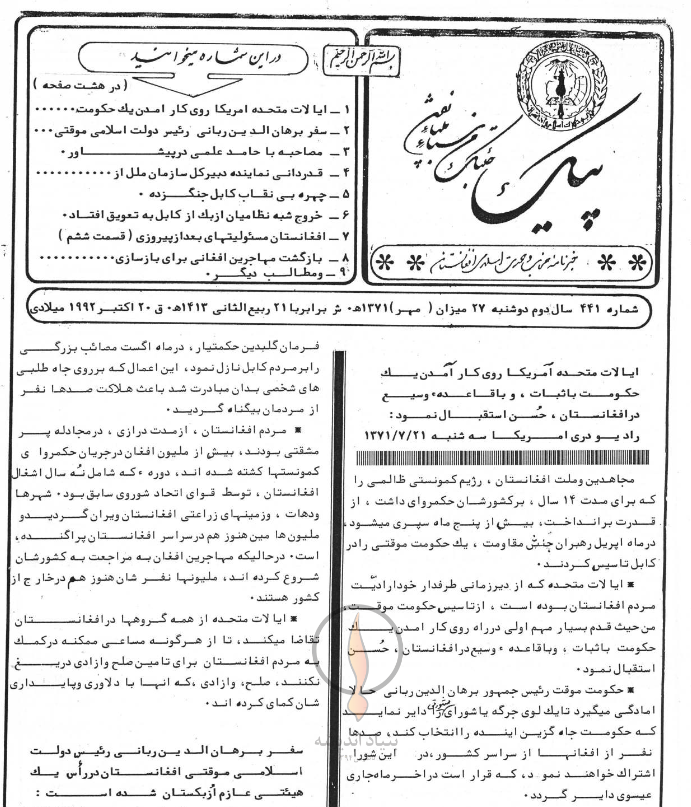 بسم الله الرحمن الرحیم
پیک
خبرنامه حزب وحدت اسلامی افغانستان
در این شماره میخوانید
( در هشت صفحه )
۱ ــ ایا لات متحده امریکا روی کار امدن یك حکومت۰۰۰۰۰۰
۲ ــ سفر برهان الدین ربانی رئیر دولت اسلامی موقتی ۰۰۰
۳ ــ مصاحبه با حامد علمی درپیشــاور ۰
۴ ــ قدردانی نماینده دبیرکل سازمان ملل از ۰۰۰۰۰۰۰۰۰۰۰
۵ ــ چهره بی نقاب کابل جنگـزده ۰
۶ ــ خروج شبه نظامیان ازبك از کابل به تعویق افتـاد۰
۷ ــ افغانستان مسئولیتهای بعد از پیروزی ( قسمت ششم )
۸ ــ بازگشت مهاجرین افغانی برای بازسازی۰۰۰۰۰۰۰۰۰۰۰
۹ ــ ومطالـب دیگـر ۰
شماره ۴۴۱ سال دوم دوشنبه ۲۷ میزان ( مهـر )۱۳۷۱ه۰ ش برابربا ۲۱ ربیع الثانی ۱۴۱۳ه۰ ق ۲۰ اکتبر ۱۹۹۲ میلادی
ایا لات متحده آمریکا روی کار آمدن یـك
حکومـت باثبات ، و باقاعـده وسیع
درافغانستان ، حُسن استقبـال نمـود :
رادیـو دری امـریکـا سه شنبه ۱۳۷۱/۷/۲۱
مجاهدین وملت افغانستان ، رژیم کمونستی ظالمی را
که برای مدت ۱۴ سال ، برکشورشان حکمروای داشت ، از
قدرت برانداخت، بیـش از پنج ماه سپری میشود،
درماه اپریل رهبران جنبش مقاومت ، یك حکومت موقتی رادر
کابل تاسیس کردنـد۰
* ایا لات متحده که از دیرزمانی طرفدار خوداراد‌یّت
مردم افغانستان بوده است ، ازتاسیس حکومت موقت
من حیث قدم بسیار مهم اولی درراه روی کار امدن یـك
حکومت باثبات ، وباقاعده ء وسیع درافغانستان ، حُسـن
استقبال نمود۰
* حکومت موقت رئیس جمهور برهان الدین ربانی حالا
امادگی میگیرد تایك لوی جرگه یاشورای مشورتی را دایر نمایـد
که حکومت جاه گزین اینـده را انتخاب کند، صدها
نفـر از افغانهـا از سراسر کشور،در این شورا
اشتراك خواهند نمود، که قرار است دراخرماه جاری
عیسوی دایر گـردد۰
فرمان گلبدین حکمتیار ، درماه اگست مصائب بزرگـی
رابرمردم کابل نازل نمود، این اعمال که برروی جاه طلبی
های شخصی بدان مبادرت شد باعث هلاکت صدها نفر
از مردمان بیگناه گردیـد۰
* مردم افغانستان ، ازمدت درازی ، درمجادله پـر
مشقتی بودنـد، بیش از ملیون افغان درجریان حکمروا ی
کمونستها کشته شده اند، دوره ء که شامل نُه سال اشغال
افغانستان ، توسط قوای اتحاد شوروی سابق بود۰ شهرها
ودهات ، وزمینهای زراعتی افغانستان ویران گـردیـدو
ملیون ها مین هنوز هم درسراسر افغانستان پراگنـده،
است۰ درحالیکه مهاجرین افغان به مراجعت به کشورشان
شروع کرده اند، ملیونها نفـر شان هنوز هم درخارج از
کشور هستند۰
* ایا لات متحده از همه گروهها درافغانستـان
تقاضا میکنند، تا از هرگونه مساعی ممکنه درکمـك
به مردم افغانستان برای تامین صلح وازادی دریـغ
نکنند، صلح، وازادی ،که انهـا با دلاوری وپایـداری
شان کمای کرده اند۰
سفر برهان الدین ربانی رئیس دولت
اسلامـی موقتـی افغانستـان درراُس یك
هیئتی عازم اُزبکستان شـده اسـت :
بنیاد اندیشه